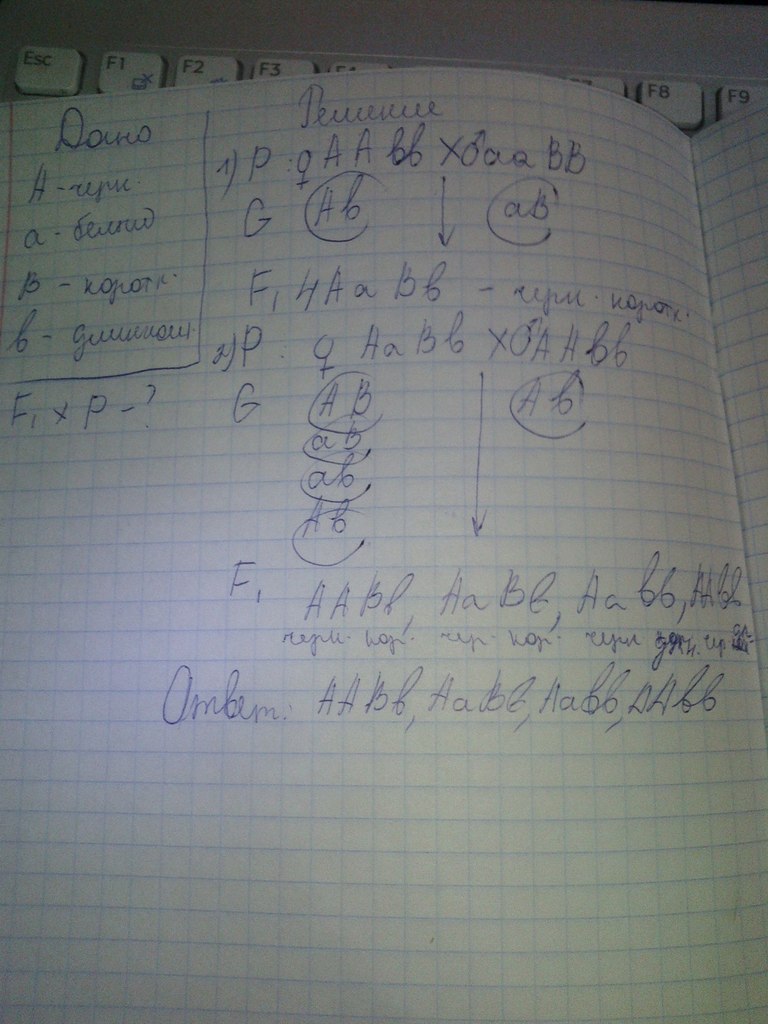 Esc F1 F2 F3 F8 F9
Дано
А - черн.
а - белый
В - коротк.
в - длиннош.
F₁ x P - ?
Решение
1) P : ♀ AA вв X ♂ аа BB
G Ав аВ
F₁ 4 Аа Вв - черн. коротк.
2) P : ♀ Аа Вв X ♂ АА вв
G АВ Ав
аВ
ав
Ав
F₁ ААВв, АаВв, Аавв, ААвв
черн. кор. чер. кор. черн чер.
Ответ: ААВв, АаВв, Аавв, ААвв